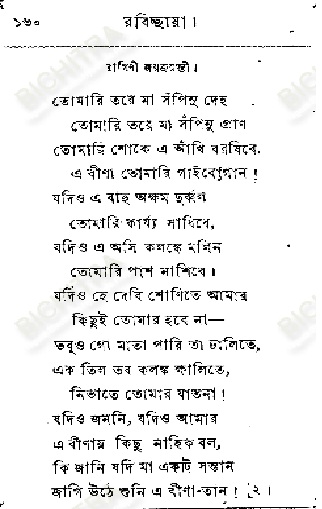 ১৬০ রবিচ্ছায়া।
রাগিণী জয়জয়ন্তী।
তোমারি তরে মা সঁপিনু দেহ
তোমারি তরে মা সঁপিনু প্রাণ
তোমারি শোকে এ আঁখি বরষিবে,
এ বীণা তোমারি গাইবে গান!
যদিও এ বাহু অক্ষম দুর্ব্বল
তোমারি কার্য্য সাধিবে,
যদিও এ অসি কলঙ্কে মলিন
তোমারি পাশ নাশিবে।
যদিও হে দেবি শোণিতে আমার
কিছুই তোমার হবে না—
তবুও গো মাতা পারি তা ঢালিতে,
এক তিল তব কলঙ্ক ক্ষালিতে,
নিভাতে তোমার যাতনা!
যদিও জননি, যদিও আমার
এ বীণায় কিছু নাহিক বল,
কি জানি যদি মা একটি সন্তান
জাগি উঠে শুনি এ বীণা-তান! । ২।
BICHITRA